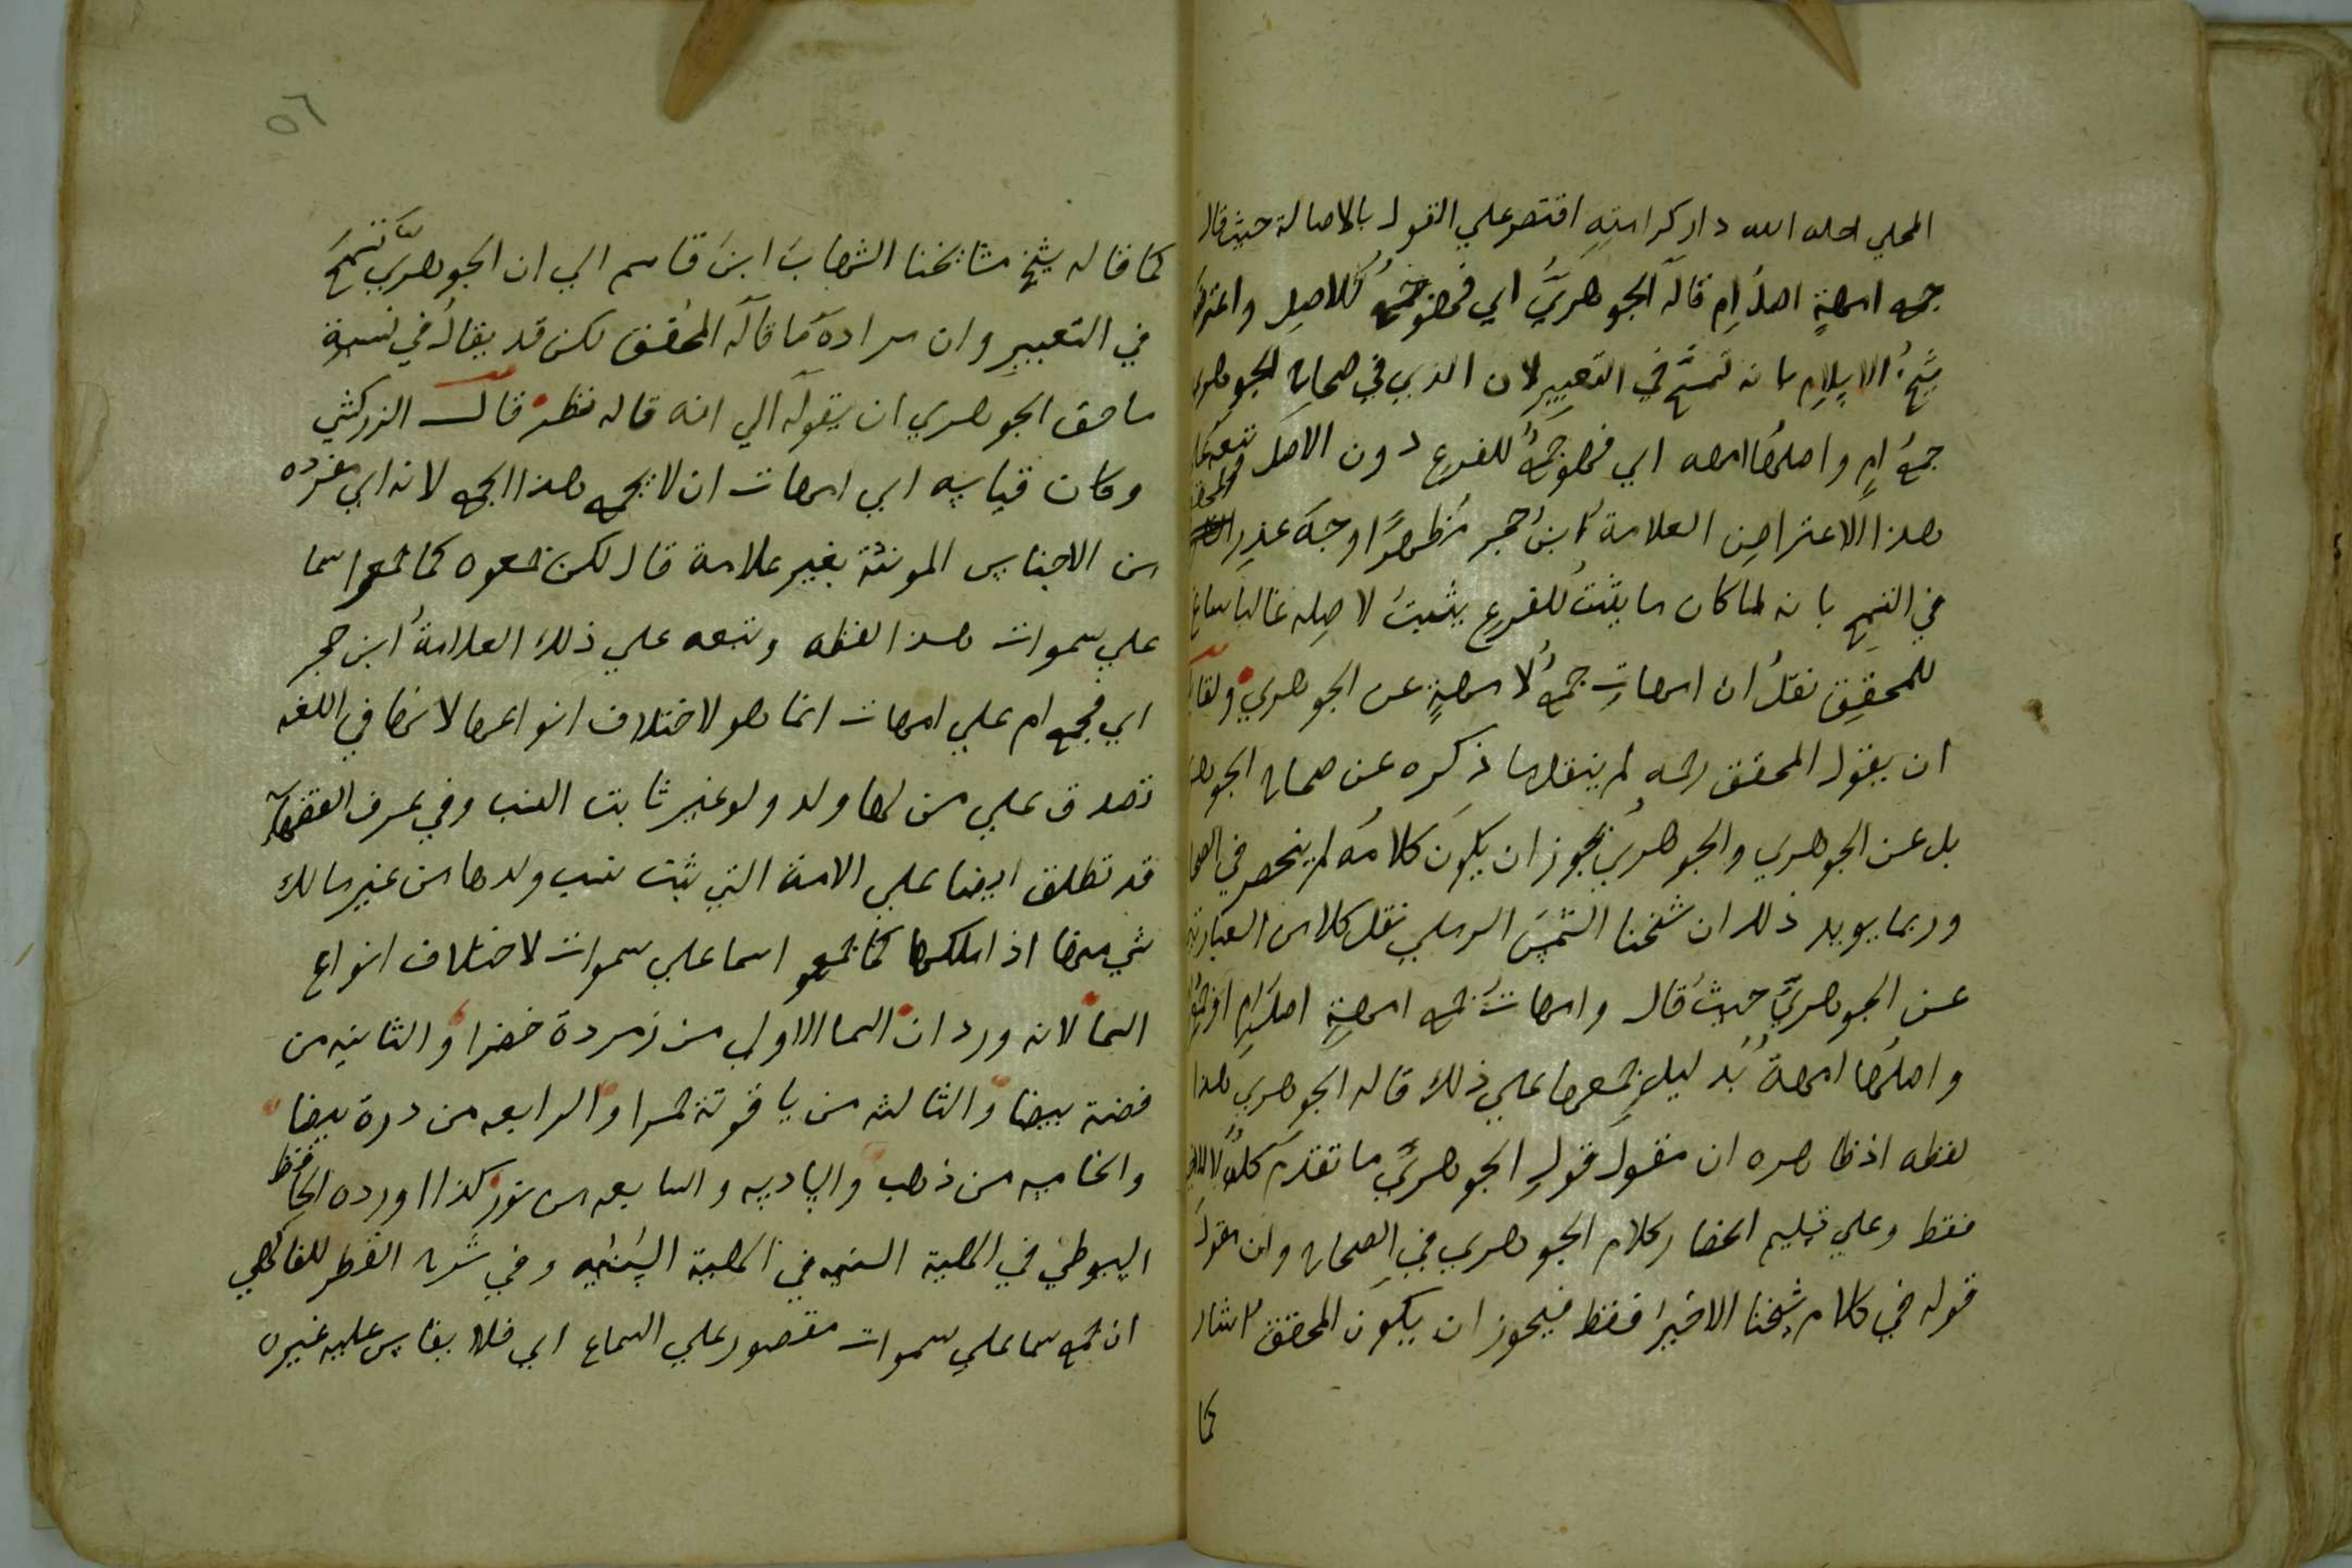 المحلي احله الله دار كرامته اقتصر علي القول بالاصالة حيث قال
جمع امهةٍ اصلُ امٍ قاله الجوهريُّ اي فهو جمعُ للاصلِ واعترض
شيخُ الاسلامِ بانه تسمَّح في التعبير لان الذي في صحاح الجوهري
جمعُ امٍ واصلُها امهه اي فهو جمعٌ للفرع دون الاصل
هذا الاعتراضِ العلامةُ ابنُ حجر مُظهرًا وجهَ عذرِ
في التسمحِ بانه لما كان ما يثبتُ للفرعِ يثبتُ لاصلِه غالبا ساغ
للمحققِ نقلُ ان امهاتِ جمعُ لامهةٍ عن الجوهري ولقايل
ان يقول المحقق رحمه لم ينقل ما ذكره عن صحاح الجوهري
بل عن الجوهري والجوهريُ يجوز ان يكونَ كلامُه لم ينحصر في الصحا
وربما يويد ذلك ان شيخنا الشمسَ الرملي نقل كلا من العبارتين
عن الجوهريِّ حيثُ قال وامهاتُ جمع امهةٍ اصل امٍ او جمعُ ام
واصلُها امهةُ بُدليلِ جمعها علي ذلك قاله الجوهري هذا
لفظه اذ ظاهره ان مقولَ قولِ الجوهريِّ ما تقدم كلُه لا
فقط وعلي تسليم انحصار كلام الجوهري في الصحاح وان مقولَ
قوله في كلام شيخنا الاخيرُ فقط فيجوز ان يكونَ المحقق اشار
كما
٥٦
كما قاله شيخ مشايخنا الشهابَ ابنَ قاسم الي ان الجوهريَّ تسمحَ
في التعبيرِ وان مرادَه ما قاله المحقق لكن قد يقالُ في نسبةِ
ما حق الجوهري ان يقوله الي انه قاله نظر قال الزركشي
وكان قياسه اي امهات ان لا يجمع هذا الجمع لانه اي مفرده
من الاجناس المونثة بغير علامة قال لكن جمعوه كما جمعوا سما
علي سموات هذا لفظه وتبعه علي ذلك العلامةُ ابن حجر
اي فجمع ام علي امهات انما هو لاختلاف انواعها لانها في اللغه
تصدق علي من لها ولد ولو غير ثابت النسب وفي عرف الفقهآء
قد تطلق ايضا علي الامة التي يثبت نسب ولدها من غير مالك
شي منها اذا ملكها كما جمعوا سما علي سموات لاختلاف انواع
السما لانه ورد ان السما الاولي من زمردة خضرا والثانيه من
فضة بيضا والثالثه من ياقوتة حمرا والرابعه من درة بيضا
والخامسه من ذهب والسادسه والسابعه من نور كذا اورده الحافظ
السيوطي في الهيية السنيه في الهيية السنيه وفي شرح القطر للفاكهي
ان جمع سما علي سموات مقصور علي السماع اي فلا يقاس عليه غيره